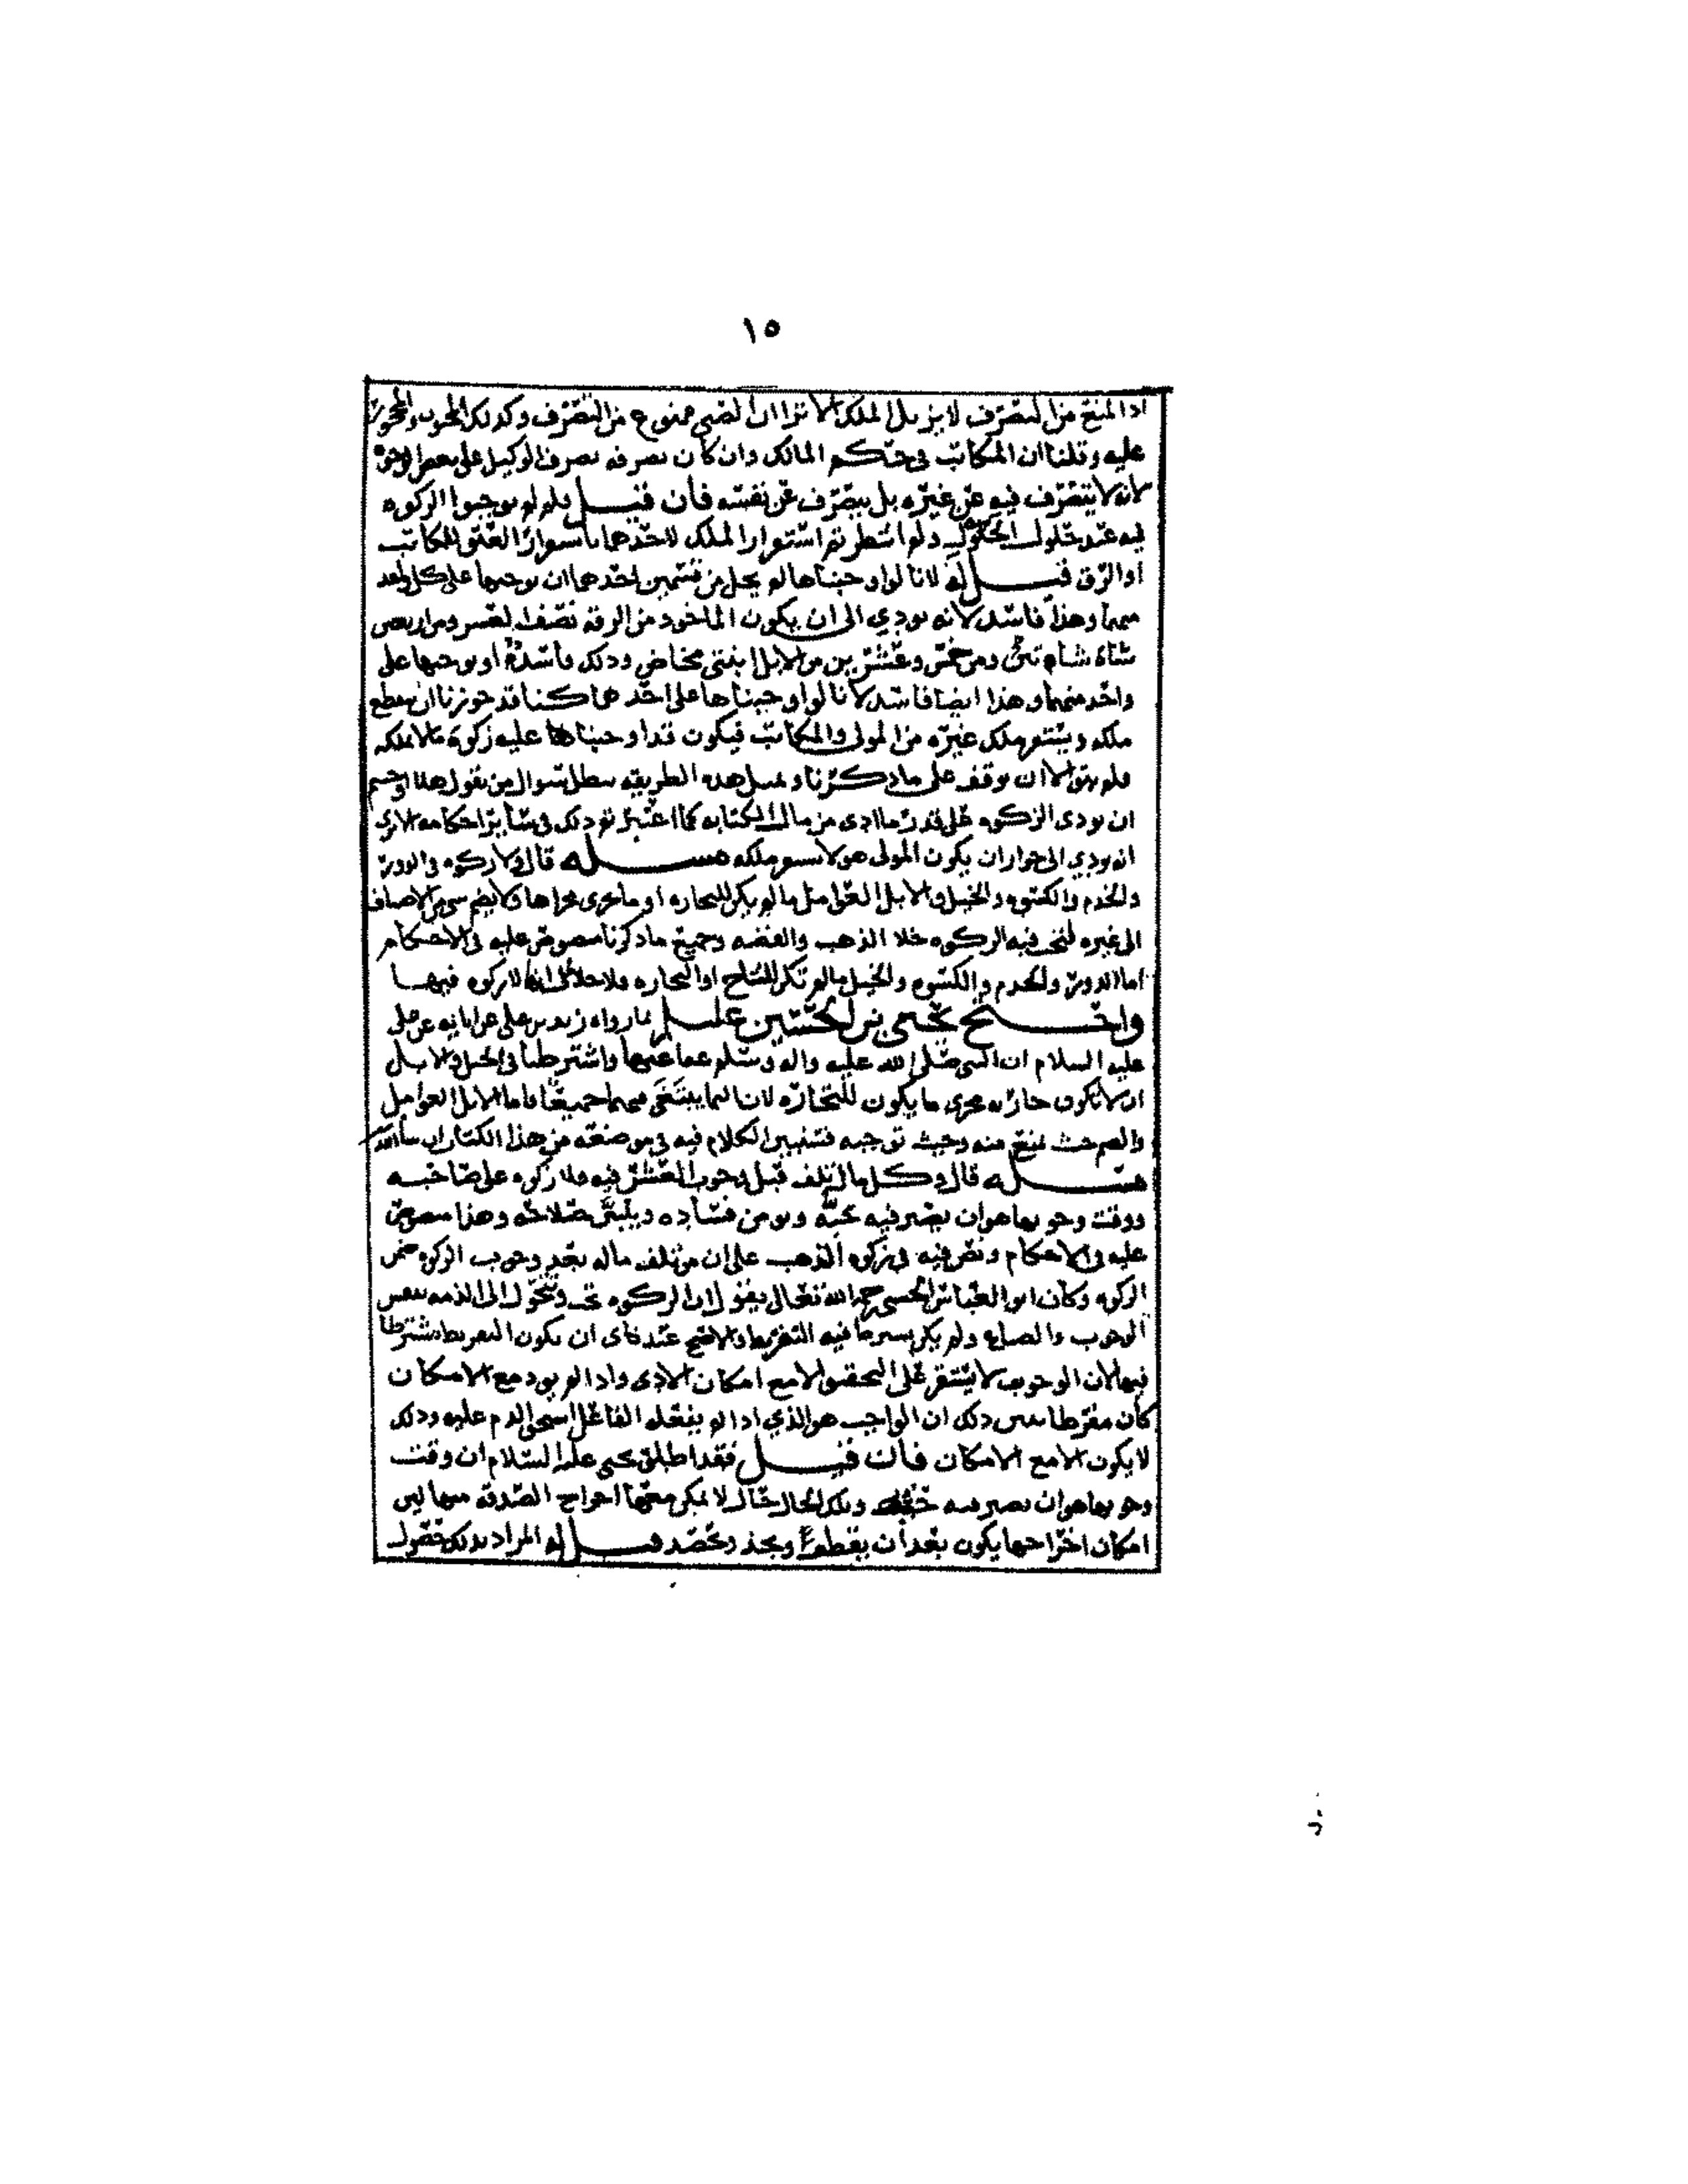 ١٥
اذا المنع من التصرف لا يزيل الملك الا ترا ان الصبي ممنوع من التصرف وكذلك المجنون والمحجور
عليه وقلنا ان المكاتب في حكم المالك وان كان تصرفه تصرف الوكيل على بعض الوجوه
لانه لا يتصرف فيه عن غيره بل يتصرف عن نفسه فان قيل فلم لم توجبوا الزكوة
فيه عند حلول الحول ولم انتظرتم استقرار الملك لاحدهما باستقرار العتق للمكاتب
او الرق قيل له لانا لو اوجبناها لم يخل من قسمين احدهما ان نوجبها على كل واحد
منهما وهذا فاسد لانه يودي الى ان يكون الماخوذ من الرقه نصف العشر ومن اربعين
شاة شاتين ومن خمس وعشرين من الابل ابنتي مخاض وذلك فاسد او نوجبها على
واحد منهما وهذا ايضا فاسد لانا لو اوجبناها على احدهما كنا قد جوزنا ان ينقطع
ملكه ويستقر ملك غيره من المولى والمكاتب فيكون قد اوجبنا عليه زكوة مالا يملكه
فلم يبق الا ان توقف على ما ذكرنا وبمثل هذه الطريقه يبطل سوال من يقول هلا اوجبتم
ان يودى الزكوه على قدر ما ادى من مال الكتابه كما اعتبرتم ذلك في سائر احكامه الا ترى
انه يودي الى جواز ان يكون المولى هو لا يستقر ملكه مسله قال ولا زكوه في الدور
والخدم والكسوه والخيل والابل العوامل ما لم يكن للتجاره او ما جرى مجراها ولا يضم شي من الاصناف
الى غيره لتجب فيه الزكوه خلا الذهب والفضه وجميع ما ذكرنا منصوص عليه في الاحكام
اما الدور والخدم والكسوه والخيل ما لم تكن للنتاج او التجاره فلا خلاف انه لا زكوه فيها
واحتج يحيى بن الحسين عليلم بما رواه زيد بن علي عن ابايه عن علي
عليه السلام ان النبي صلى الله عليه واله وسلم عفا عنها واشترطنا في الخيل والابل
ان لا تكون جاريه مجرى ما يكون للتجاره لان النما يبتغى فيهما جميعا فاما الابل العوامل
والضم حيث نمنع منه وحيث نوجبه فسنبين الكلام فيه في موضعه من هذا الكتاب ان شا الله
مسله قال وكل مال تلف قبل وجوب العشر فيه فلا زكوه على صاحبه
ووقت وجوبها هو ان يصير فيه حبه ويومن فساده ويتبين صلاحه وهذا منصوص
عليه في الاحكام ونص فيه في زكوه الذهب على ان من تلف ماله بعد وجوب الزكوه ضمن
الزكوه وكان ابو العباس الحسني رحمه الله تعالى يقول ان الزكوه تجب وتتحول الى الذمه بنفس
الوجوب والضياع ولم يكن يشترط فيه التفريط والاصح عندي ان يكون التفريط مشترطا
فيها لان الوجوب لا يستقر على التحقيق الا مع امكان الادى واذا لم يود مع الامكان
كان مفرطا يبين ذلك ان الواجب هو الذي اذا لم يفعله الفاعل استحق الذم عليه وذلك
لا يكون الا مع الامكان فان قيل فقد اطلق يحيى عليه السلام ان وقت
وجوبها هو ان يصير فيه حبه وتلك الحال حال لا يمكن معها اخراج الصدقه منها لان
امكان اخراجها يكون بعد ان يقطع ويجذ ويحصد قيل له المراد بذلك حصول